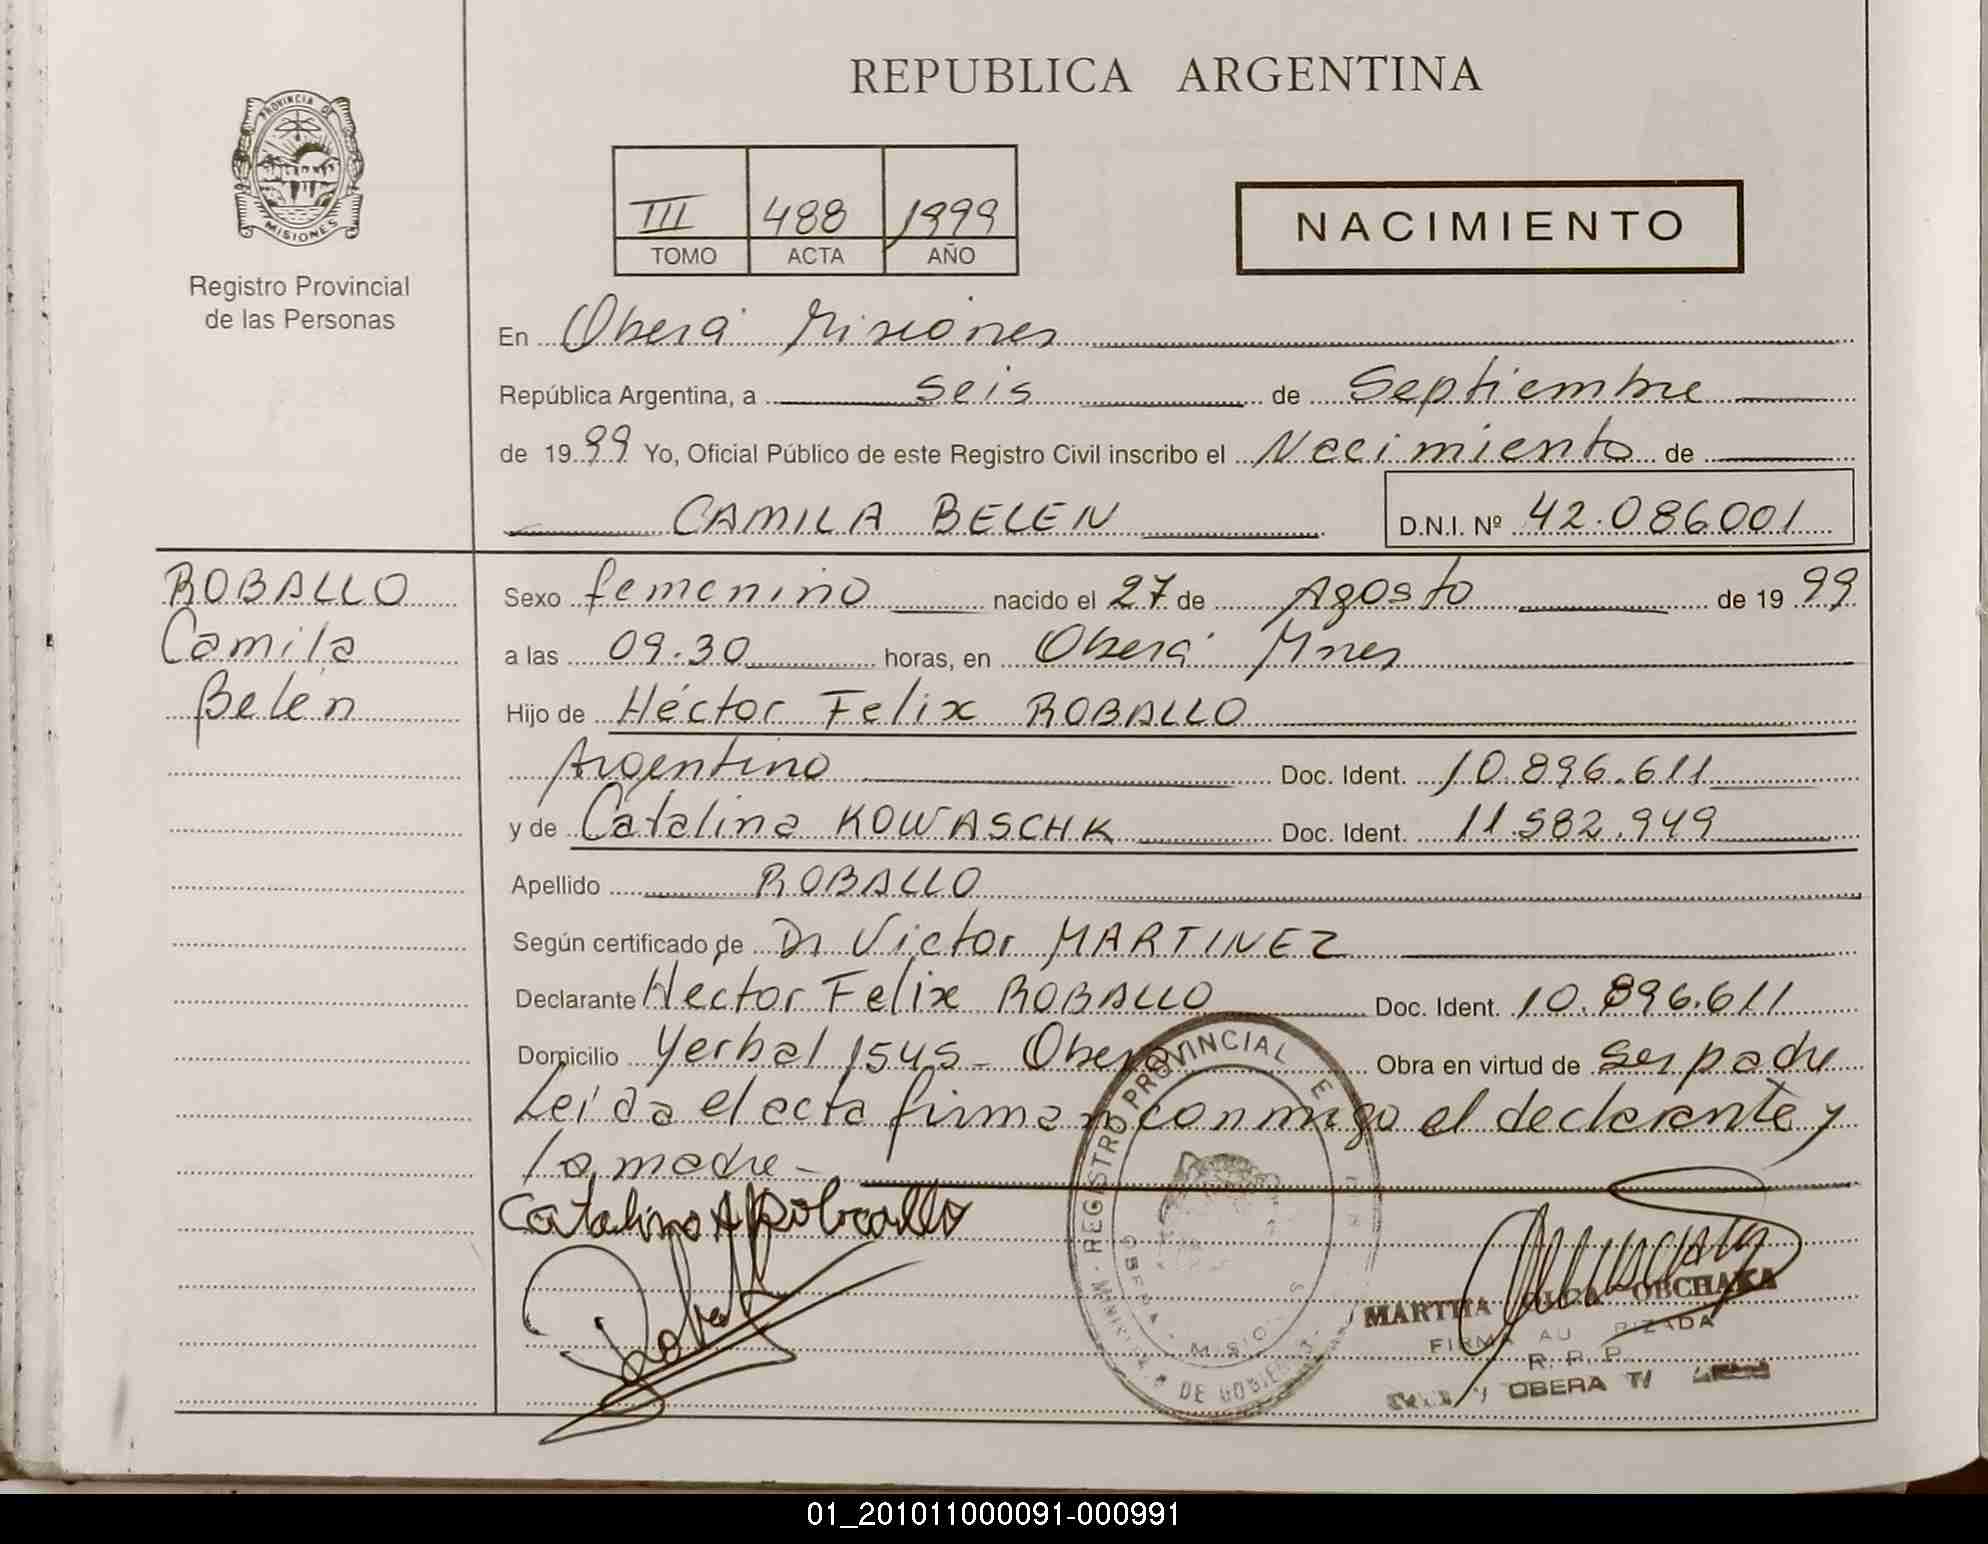 REPUBLICA ARGENTINA
PROVINCIA DE
MISIONES
Registro Provincial
de las Personas
III 488 1999
TOMO ACTA AÑO
NACIMIENTO
En Oberá Misiones
República Argentina, a seis de Septiembre
de 1999 Yo, Oficial Público de este Registro Civil inscribo el Nacimiento de
CAMILA BELEN D.N.I. Nº 42.086001
ROBALLO
Camila
Belén
Sexo femenino nacido el 27 de Agosto de 1999
a las 09.30 horas, en Oberá Mnes
Hijo de Héctor Felix ROBALLO
Argentino Doc. Ident. 10.896.611
y de Catalina KOWASCHK Doc. Ident. 11.582.949
Apellido ROBALLO
Según certificado de Dr Victor MARTINEZ
Declarante Hector Felix ROBALLO Doc. Ident. 10.896.611
Domicilio Yerbal 1545 - Oberá Obra en virtud de ser padre
Leída el acta firman conmigo el declarante y
la madre -
Catalina Roballo
REGISTRO PROVINCIAL DE
MINISTERIO DE GOBIERNO
OBERA - MISIONES
MARTHA OLGA OBCHAKA
FIRMA AUTORIZADA
R. P. P.
OBERA
01_201011000091-000991